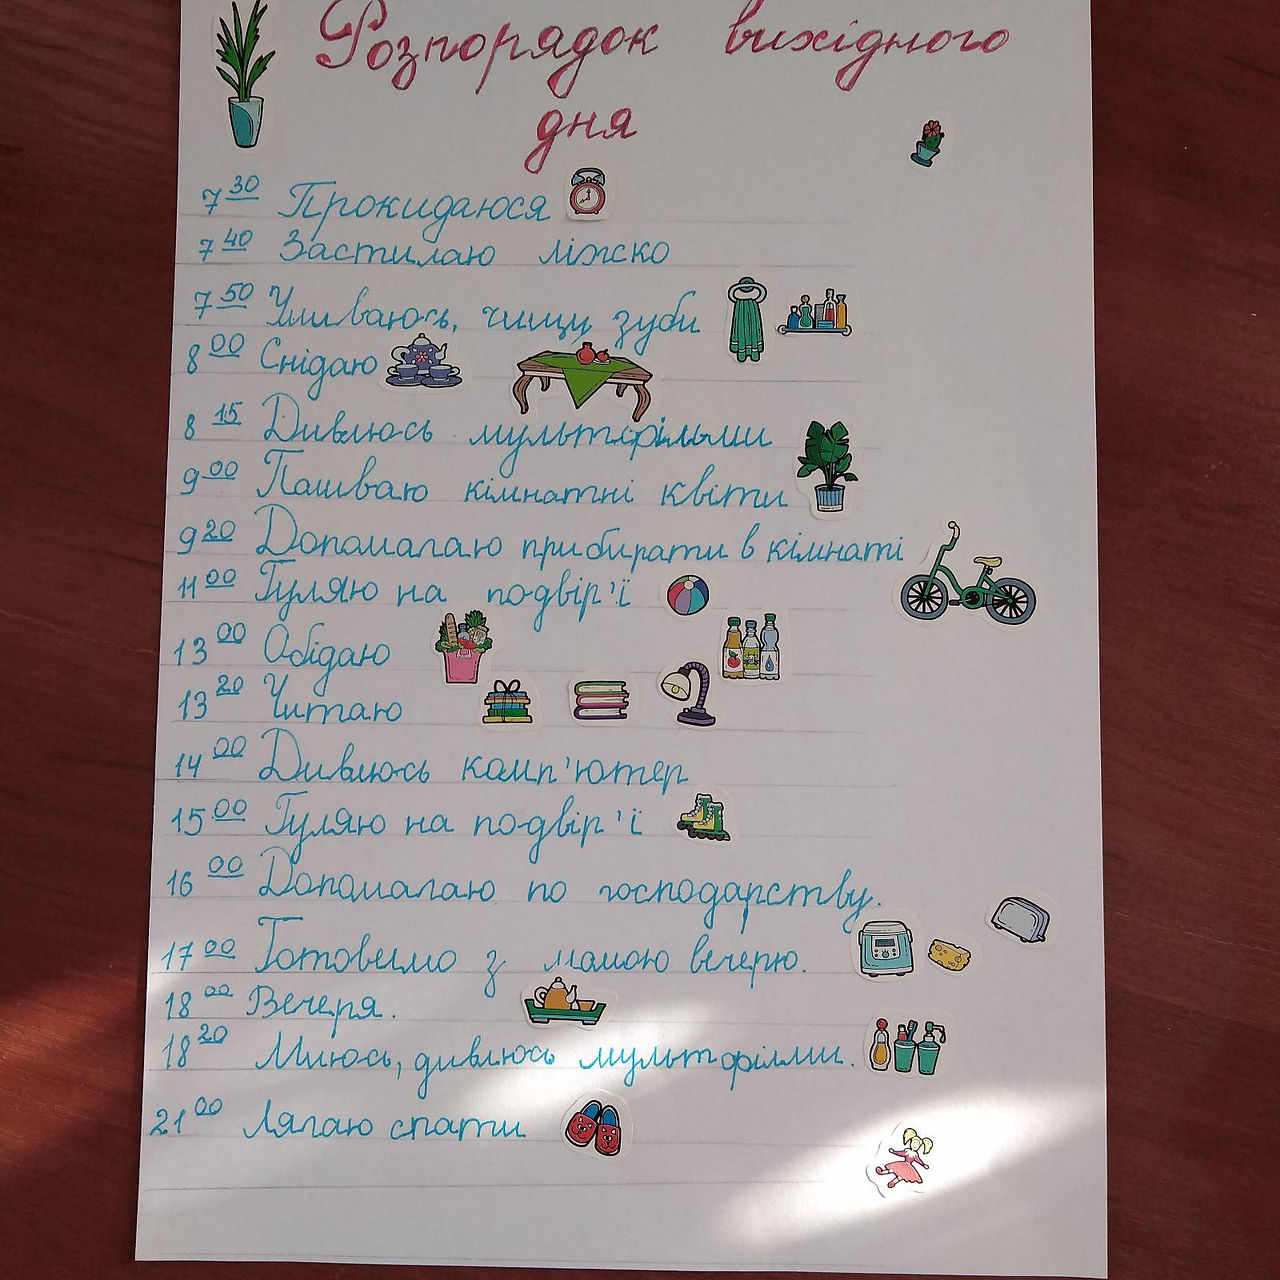 Розпорядок вихідного
дня
7 30 Прокидаюся
7 40 Застилаю ліжко
7 50 Умиваюсь, чищу зуби
8 00 Снідаю
8 15 Дивлюсь мультфільми
9 00 Поливаю кімнатні квіти
9 20 Допомагаю прибирати в кімнаті
11 00 Гуляю на подвір'ї
13 00 Обідаю
13 20 Читаю
14 00 Дивлюсь комп'ютер
15 00 Гуляю на подвір'ї
16 00 Допомагаю по господарству.
17 00 Готовимо з мамою вечерю.
18 00 Вечеря.
18 20 Миюсь, дивлюсь мультфілми.
21 00 Лягаю спати